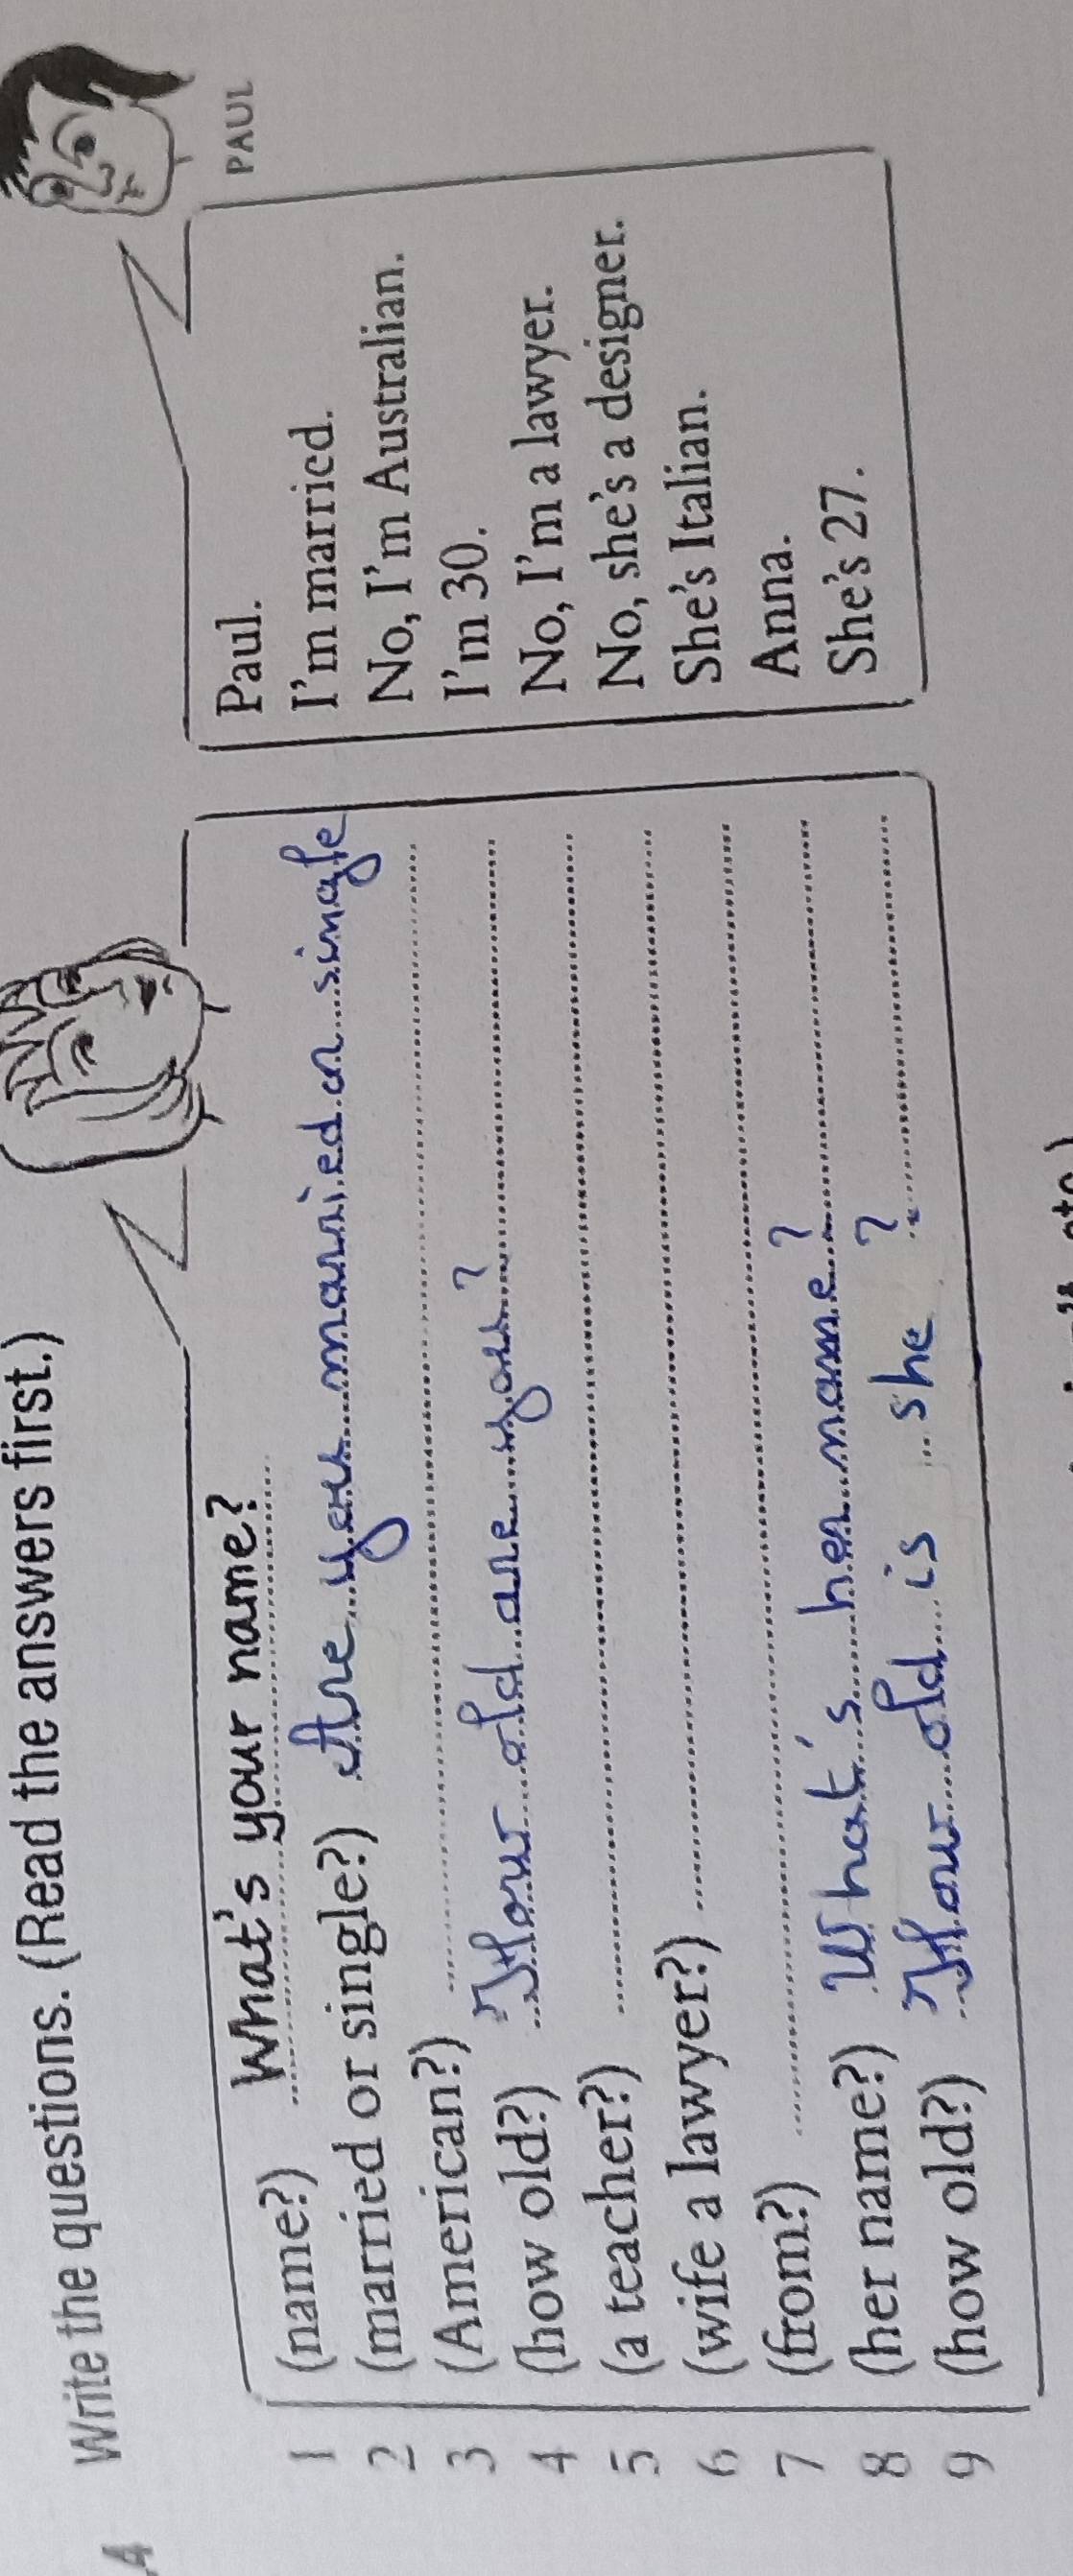 .4 Write the questions. (Read the answers first.)
1 (name?) What's your name? Paul.
2 (married or single?) Are you married or single I'm married.
3 (American?) No, I'm Australian.
4 (how old?) How old are you? I'm 30.
5 (a teacher?) No, I'm a lawyer.
6 (wife a lawyer?) No, she's a designer.
7 (from?) She's Italian.
8 (her name?) What's her name? Anna.
9 (how old?) How old is she ? She's 27.
PAUL